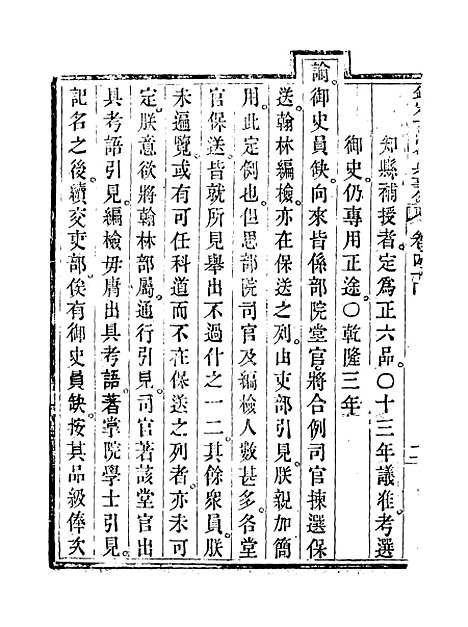 知縣補授者定爲正六品○十三年議准考選
御史仍專用正途○乾隆三年
諭御史員缺向來皆係部院堂官將合例司官揀選保
送翰林編檢亦在保送之列由吏部引見朕親加簡
用此定例也但思部院司官及編檢人數甚多各堂
官保送皆就所見舉出不過什之一二其餘衆員朕
未遍覽或有可任科道而不在保送之列者亦未可
定朕意欲將翰林部屬通行引見司官著該堂官出
具考語引見編檢毋庸出具考語著掌院學士引見
記名之後續交吏部俟有御史員缺按其品級俸次